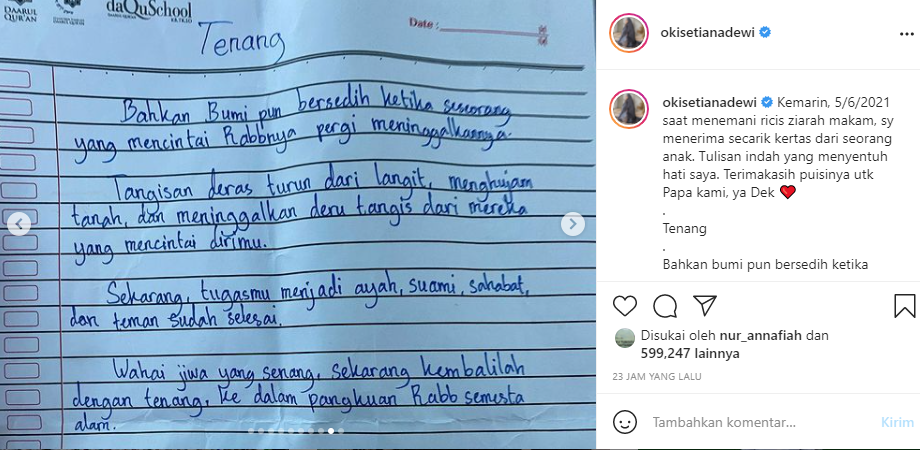 DAARUL
QUR'AN
daQuSchool
Date :
Tenang
Bahkan Bumi pun bersedih ketika seseorang
yang mencintai Rabbnya pergi meninggalkannya.
Tangisan deras turun dari langit, menghujam
tanah, dan meninggalkan deru tangis dari mereka
yang mencintai dirimu.
Sekarang, tugasmu menjadi ayah, suami, sahabat,
dan teman sudah selesai.
Wahai jiwa yang senang, sekarang kembalilah
dengan tenang, ke dalam pangkuan Rabb semesta
alam.
okisetianadewi
okisetianadewi Kemarin, 5/6/2021
saat menemani ricis ziarah makam, sy
menerima secarik kertas dari seorang
anak. Tulisan indah yang menyentuh
hati saya. Terimakasih puisinya utk
Papa kami, ya Dek ❤
.
Tenang
.
Bahkan bumi pun bersedih ketika
Disukai oleh nur_annafiah dan
599,247 lainnya
23 JAM YANG LALU
Tambahkan komentar...
Kirim